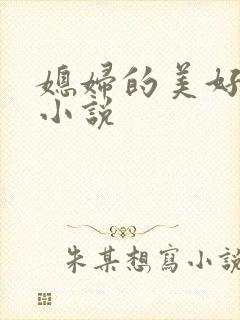 媳婦的美好
小說
朱某想寫小說